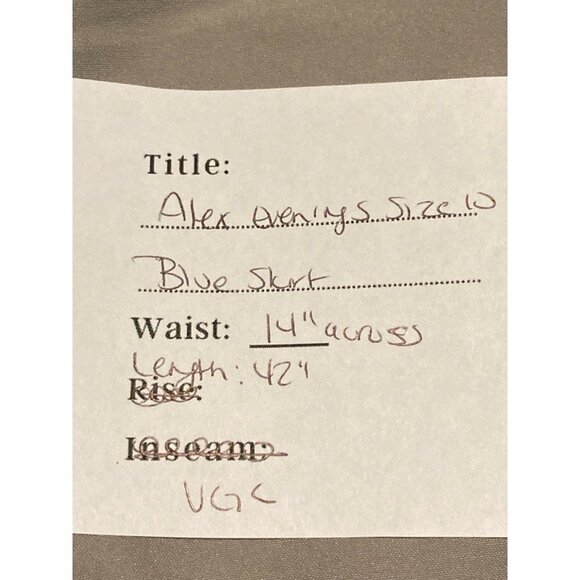 Title:
Alex Evenings Size 10
Blue Skirt
Waist: 14" across
Length: 42"
Rise:
Inseam:
VGC